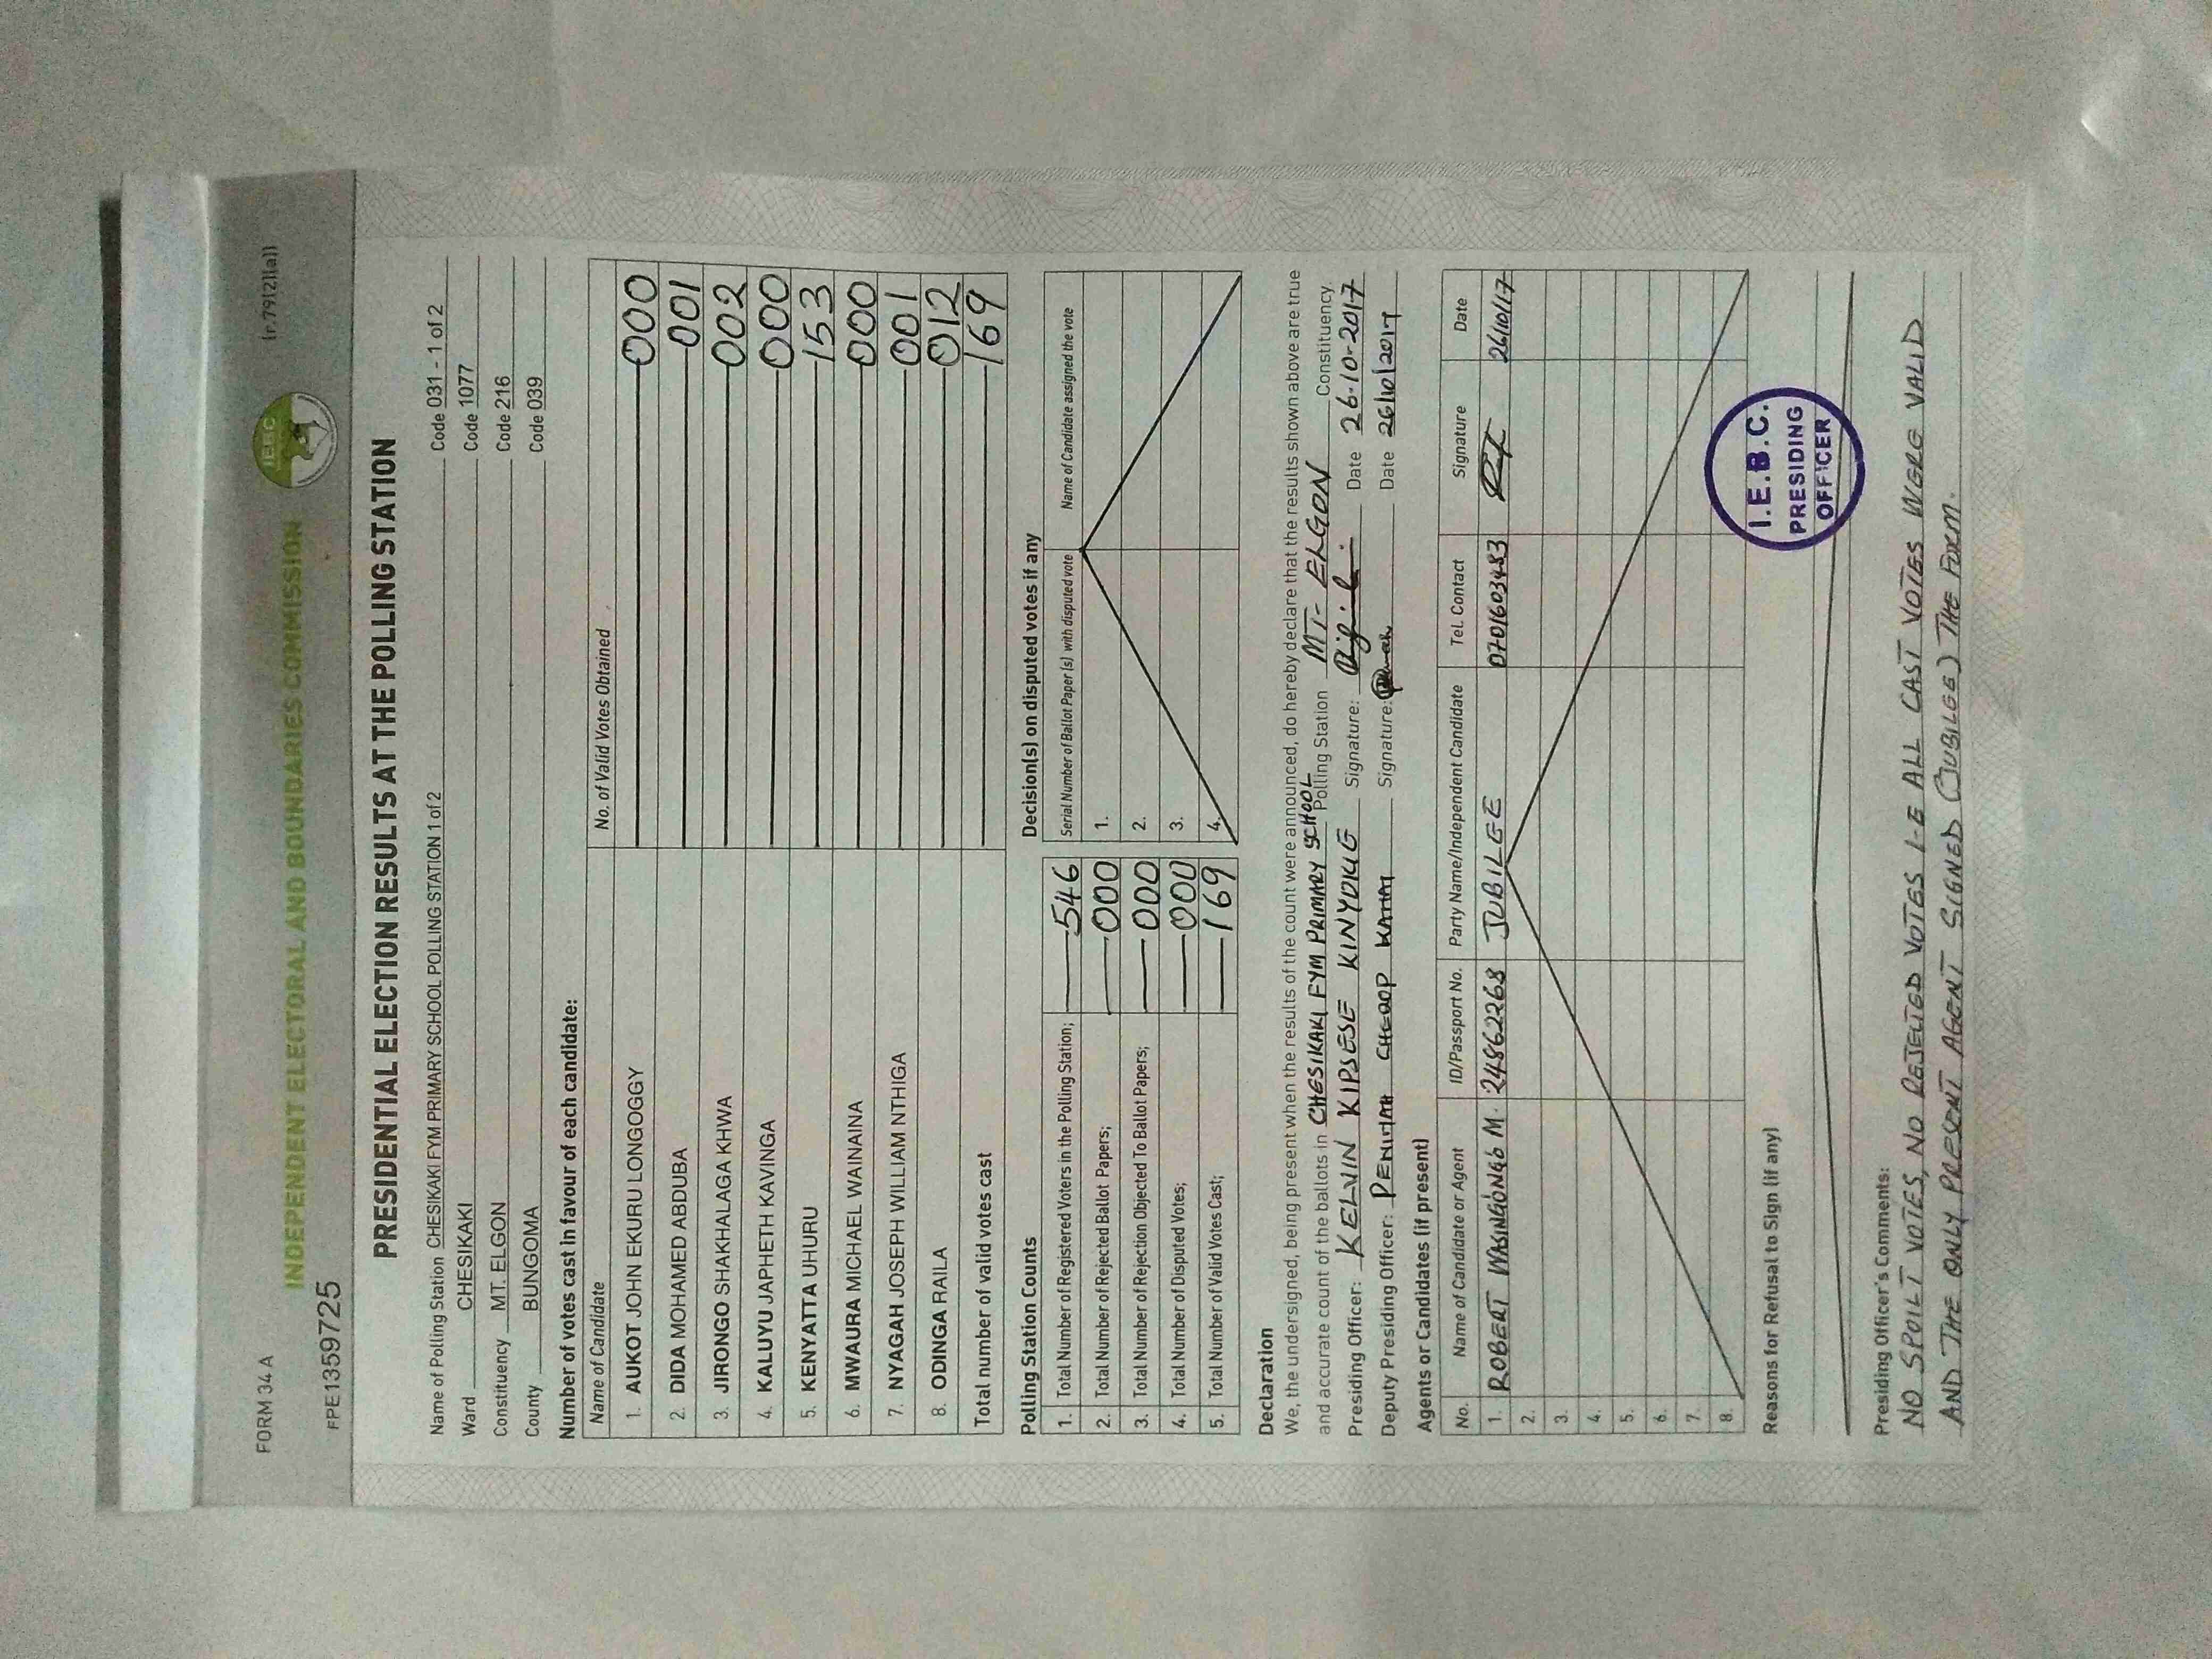 FORM 34 A
(r.79(2)(a))
FPE1359725
INDEPENDENT ELECTORAL AND BOUNDARIES COMMISSION
IEBC
PRESIDENTIAL ELECTION RESULTS AT THE POLLING STATION
Name of Polling Station CHESIKAKI FYM PRIMARY SCHOOL POLLING STATION 1 of 2 Code 031 - 1 of 2
Ward CHESIKAKI Code 1077
Constituency MT. ELGON Code 216
County BUNGOMA Code 039
Number of votes cast in favour of each candidate:
Name of Candidate No. of Valid Votes Obtained
1. AUKOT JOHN EKURU LONGOGGY 000
2. DIDA MOHAMED ABDUBA 001
3. JIRONGO SHAKHALAGA KHWA 002
4. KALUYU JAPHETH KAVINGA 000
5. KENYATTA UHURU 153
6. MWAURA MICHAEL WAINAINA 000
7. NYAGAH JOSEPH WILLIAM NTHIGA 001
8. ODINGA RAILA 012
Total number of valid votes cast 169
Polling Station Counts Decision(s) on disputed votes if any
Serial Number of Ballot Paper (s) with disputed vote Name of Candidate assigned the vote
1. Total Number of Registered Voters in the Polling Station; 546 1.
2. Total Number of Rejected Ballot Papers; 000 2.
3. Total Number of Rejection Objected To Ballot Papers; 000 3.
4. Total Number of Disputed Votes; 000 4.
5. Total Number of Valid Votes Cast; 169
Declaration
We, the undersigned, being present when the results of the count were announced, do hereby declare that the results shown above are true
and accurate count of the ballots in CHESIKAKI FYM PRIMARY SCHOOL Polling Station MT- ELGON Constituency.
Presiding Officer: KELVIN KIPSESE KINYOKIE Signature: Date 26-10-2017
Deputy Presiding Officer: PENINAH CHEROP Signature: Date 26/10/2017
Agents or Candidates (if present)
No. Name of Candidate or Agent ID/Passport No. Party Name/Independent Candidate Tel. Contact Signature Date
1. ROBERT WASING'ONG'O M. 24862268 JUBILEE 0701603483 26/10/17
2.
3.
4.
5.
6.
7.
8.
Reasons for Refusal to Sign (if any)
I.E.B.C.
PRESIDING
OFFICER
Presiding Officer's Comments:
NO SPOILT VOTES, NO REJECTED VOTES I-E ALL CAST VOTES WERE VALID
AND THE ONLY PRESENT AGENT SIGNED (JUBILEE) THE FORM.